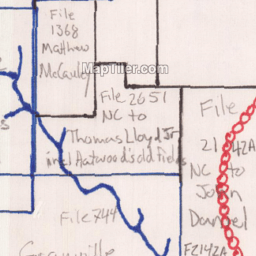 File
1368
Matthew
McCauley
MapTiler.com
File 2651
NC to
Thomas Lloyd Jr
incl Aatwood's old fields
File
2142A
NC to
John
Daniel
File 744
F2142A
Granville